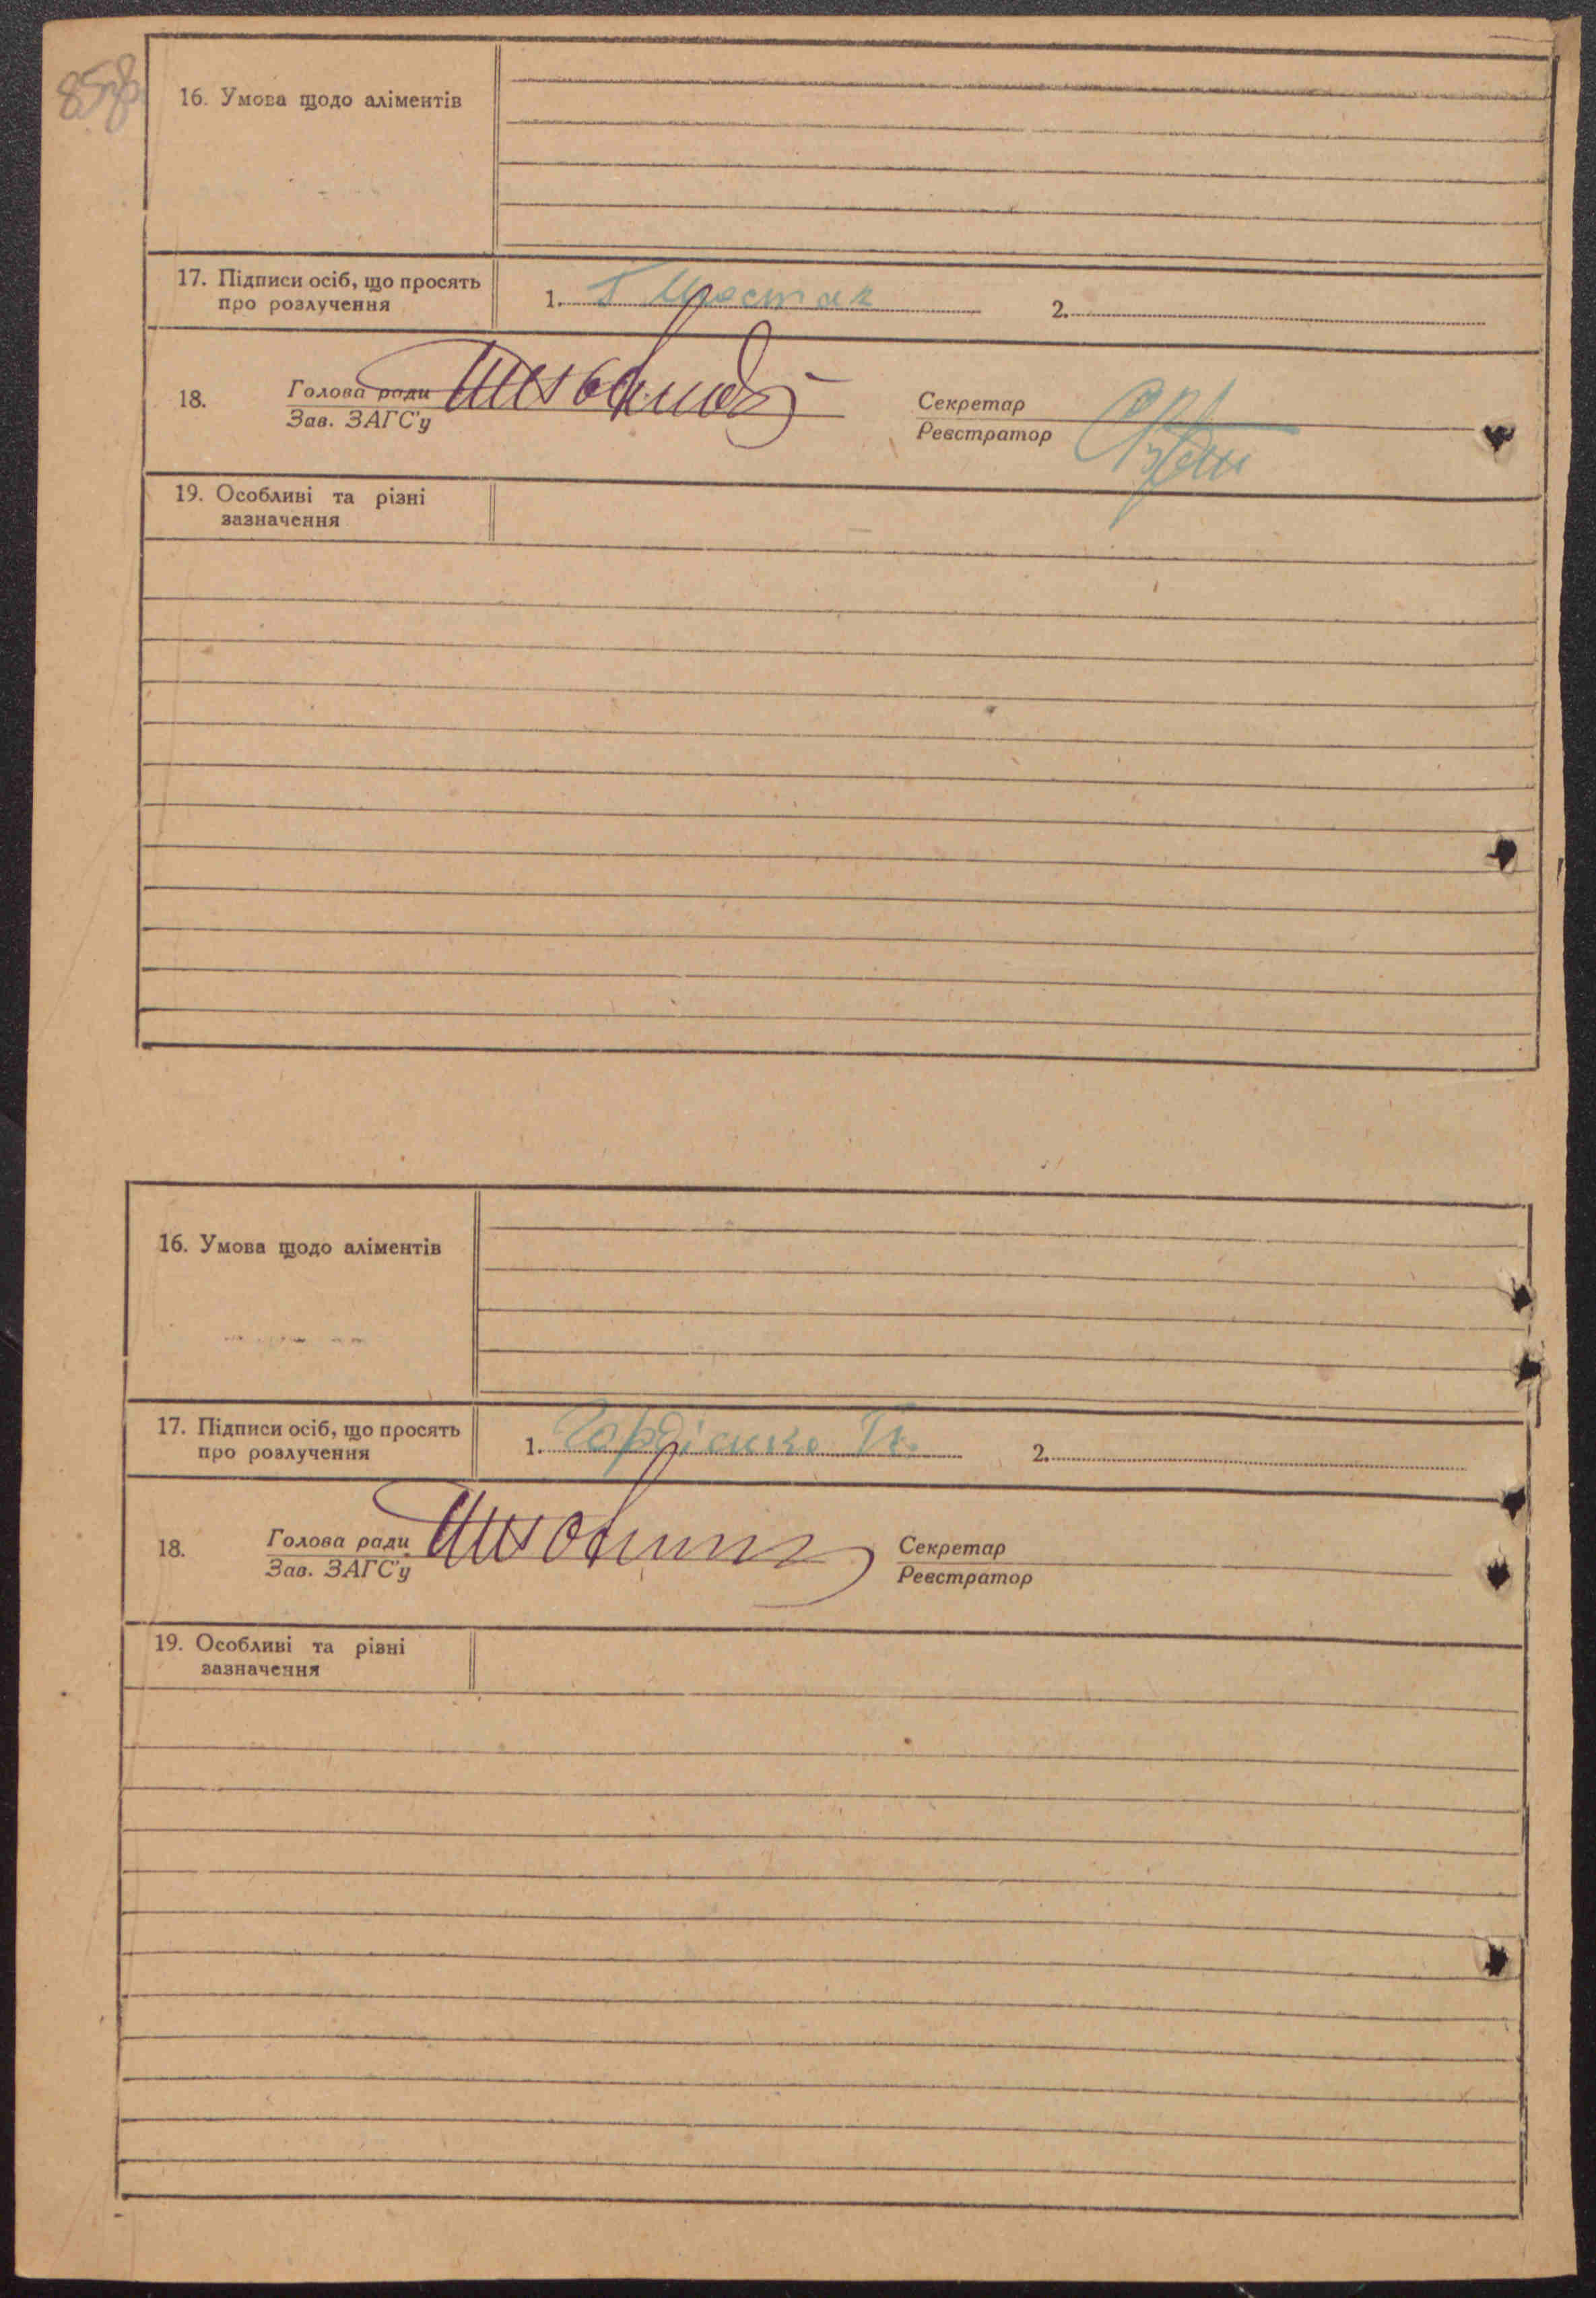 16. Умова щодо аліментів
17. Підписи осіб, що просять
про розлучення
1.
2.
18.
Голова ради
Зав. ЗАГС'у
Секретар
Реєстратор
19. Особливі та різні
зазначення
16. Умова щодо аліментів
17. Підписи осіб, що просять
про розлучення
1. Гордієнко
2.
18.
Голова ради
Зав. ЗАГС'у
Секретар
Реєстратор
19. Особливі та різні
зазначення